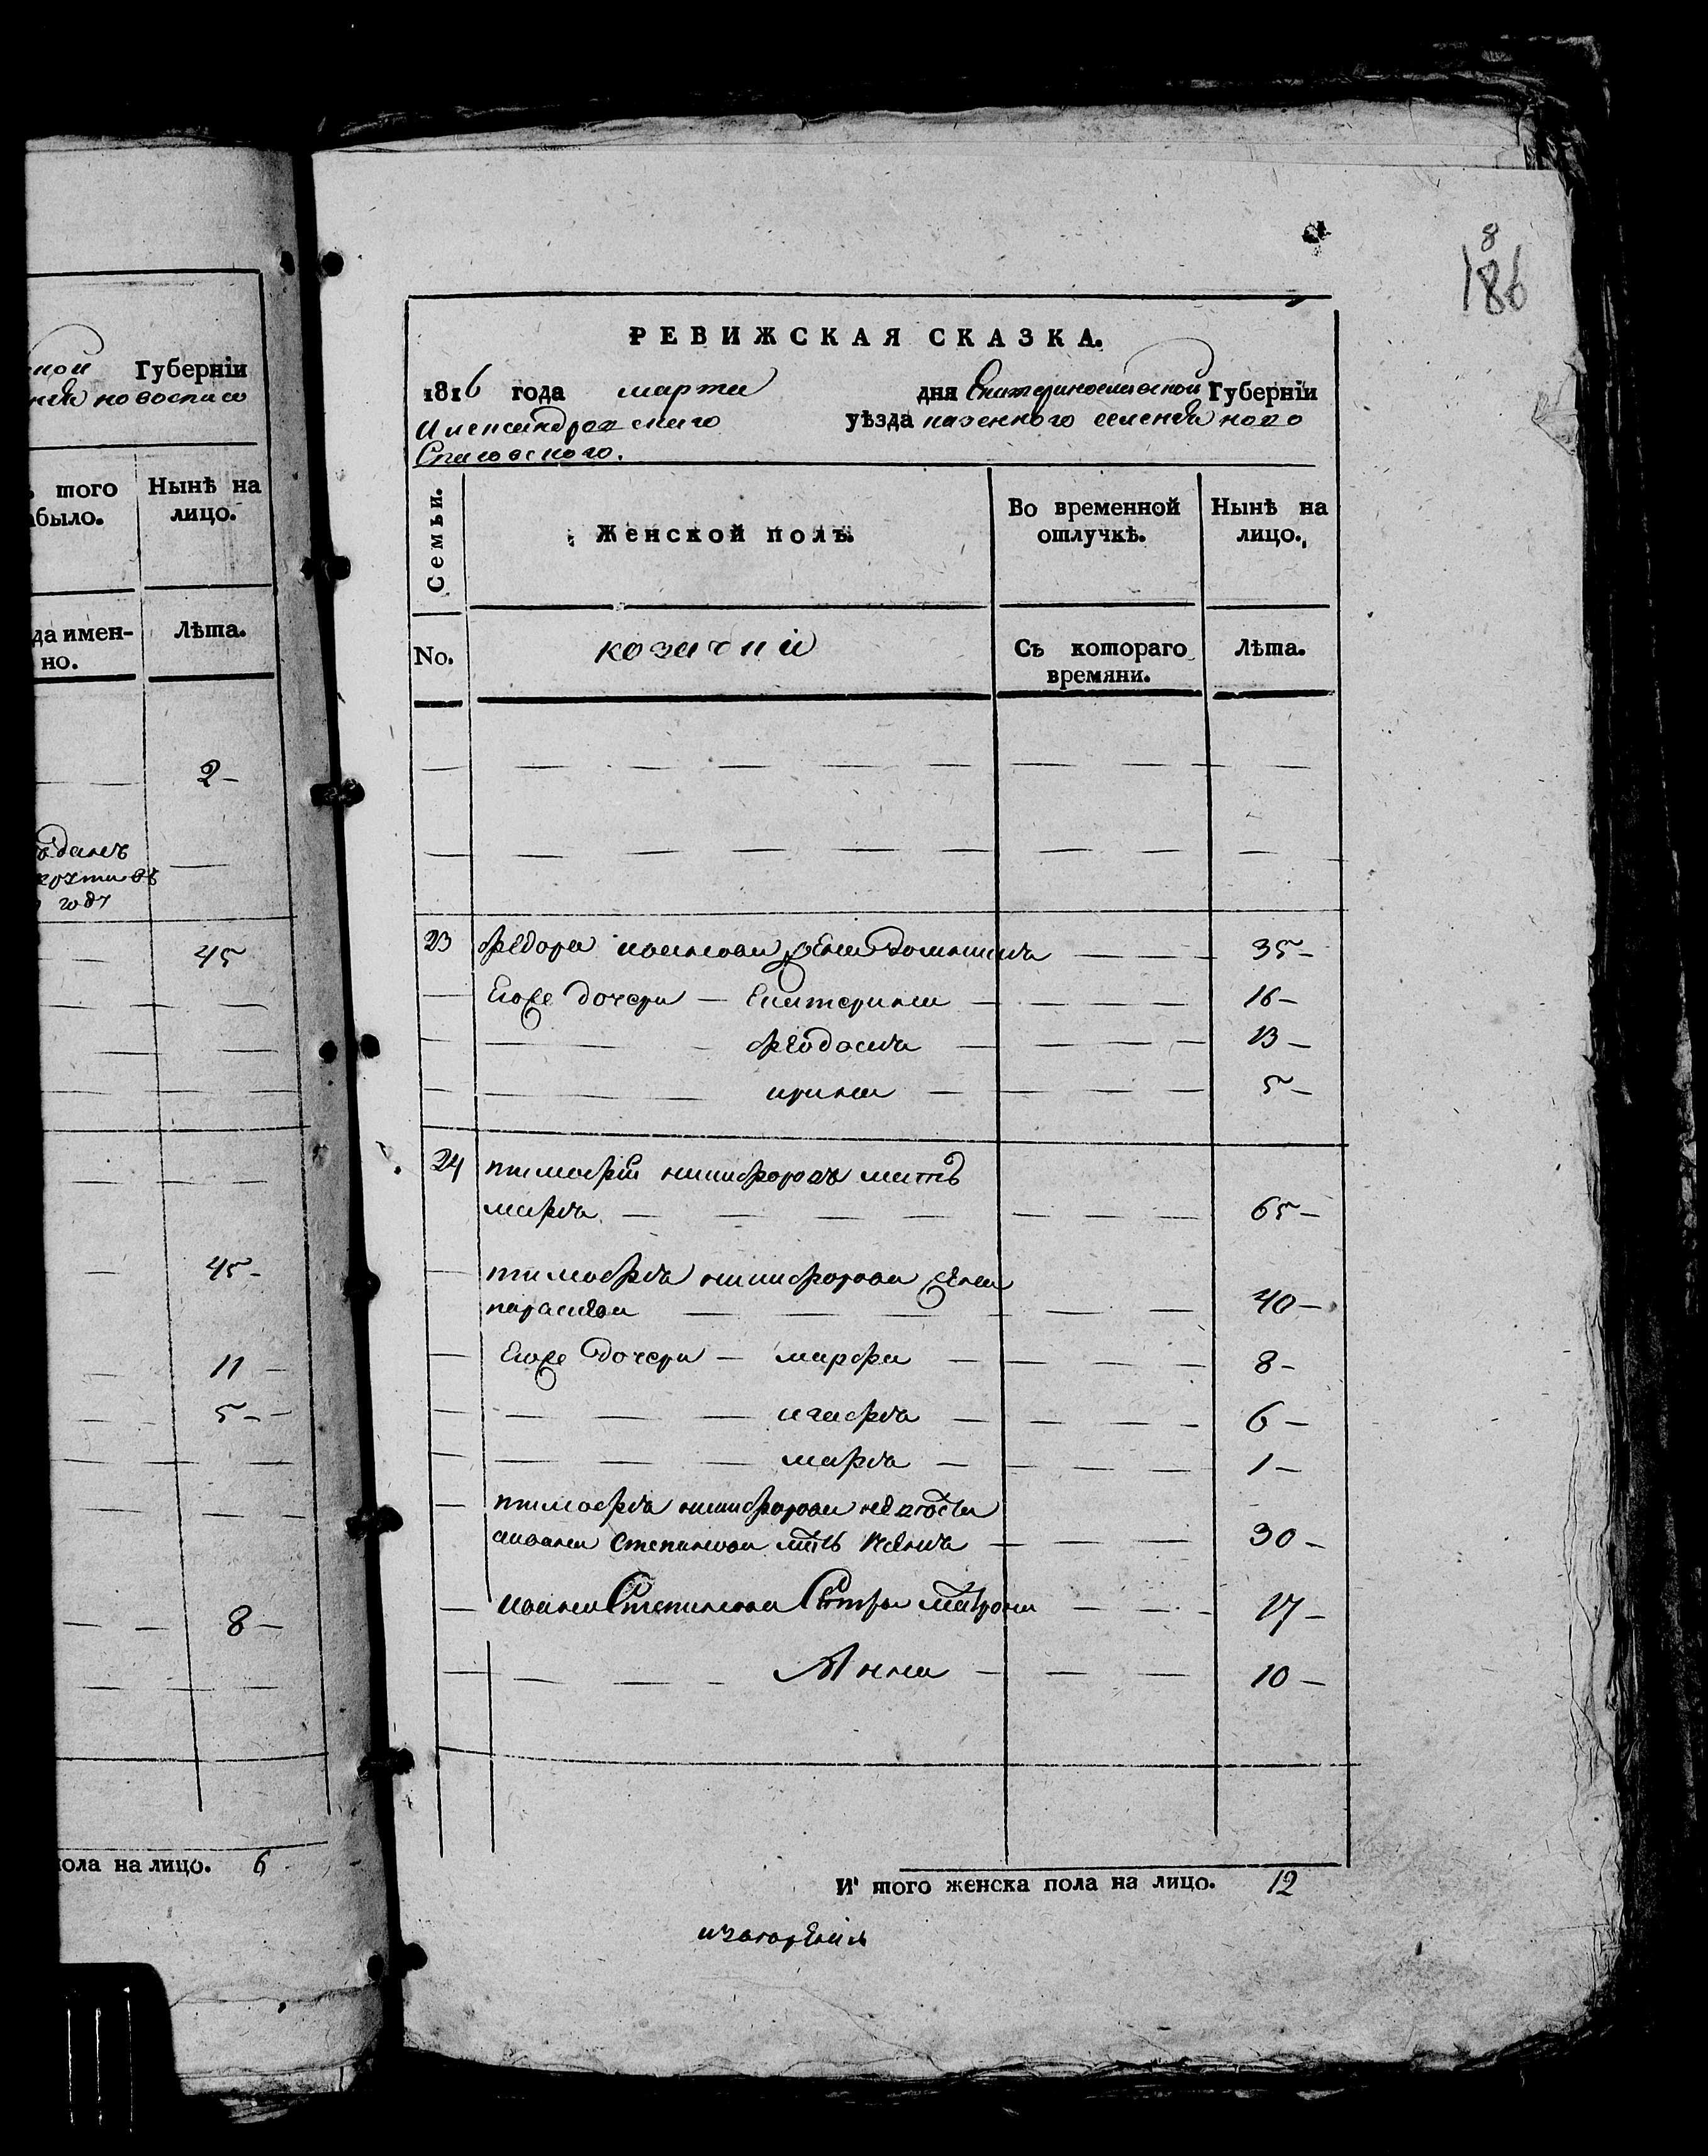 ной Губерніи
новоспасо
того
было.
Нынѣ на
лицо.
да имен-
но.
Лѣта.
2 –
году
45
45 –
11 –
5 –
8 –
пола на лицо. 6
8
186
РЕВИЖСКАЯ СКАЗКА.
1816 года марта дня Екатеринославской Губерніи
Александровскаго уѣзда казенного селенія ново
Спасовского.
Семьи.
Женской полъ.
Во временной
отлучкѣ.
Нынѣ на
лицо.
No.
козачки
Съ котораго
времяни.
Лѣта.
23 федора иванова жена домникия 35 –
Егоже дочери – Екатерина 16 –
феодосия 13 –
ирина 5 –
24 тимофей никифоровъ мать
мария 65 –
тимофея никифорова жена
параскева 40 –
Егоже дочери – марфа 8 –
агафия 6 –
мария 1 –
тимофея никифорова
ивана степанова мать 30 –
ивана Степанова Сестры матрона 17 –
Анна 10 –
И того женска пола на лицо. 12